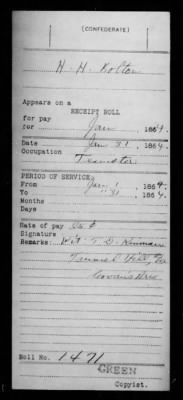 (CONFEDERATE)
H. H. Kolton
Appears on a
RECEIPT ROLL
for pay
for Jan 1864.
Date Jan 31, 1864.
Occupation Teamster
PERIOD OF SERVICE:
From Jan 1 1864,
To " 31 1864.
Months
Days
Rate of pay
Signature
Remarks: Wit: T. D.
Tunnel Hill, Ga
Roll No. 1471
GREEN
Copyist.